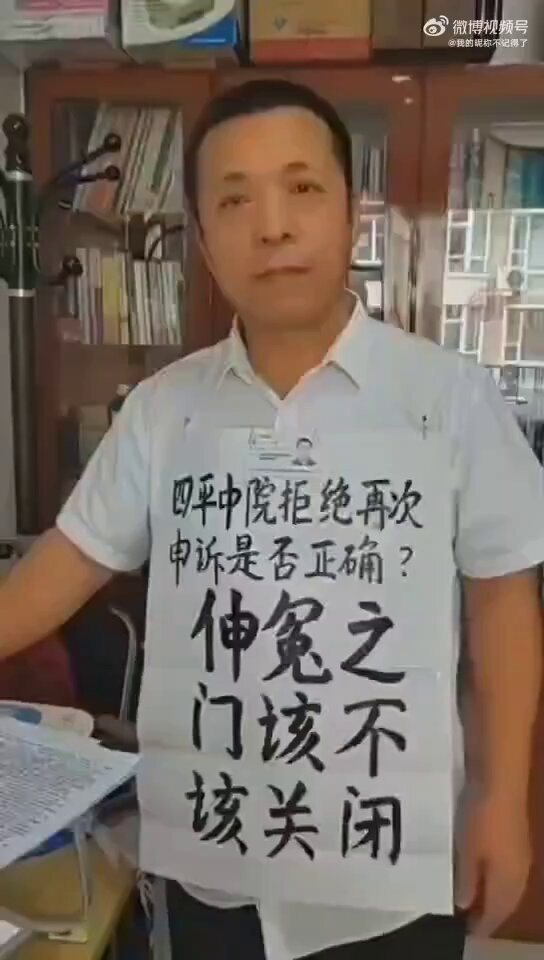 微博视频号
@我的昵称不记得了
四平中院拒绝再次
申诉是否正确?
伸冤之
门该不
该关闭